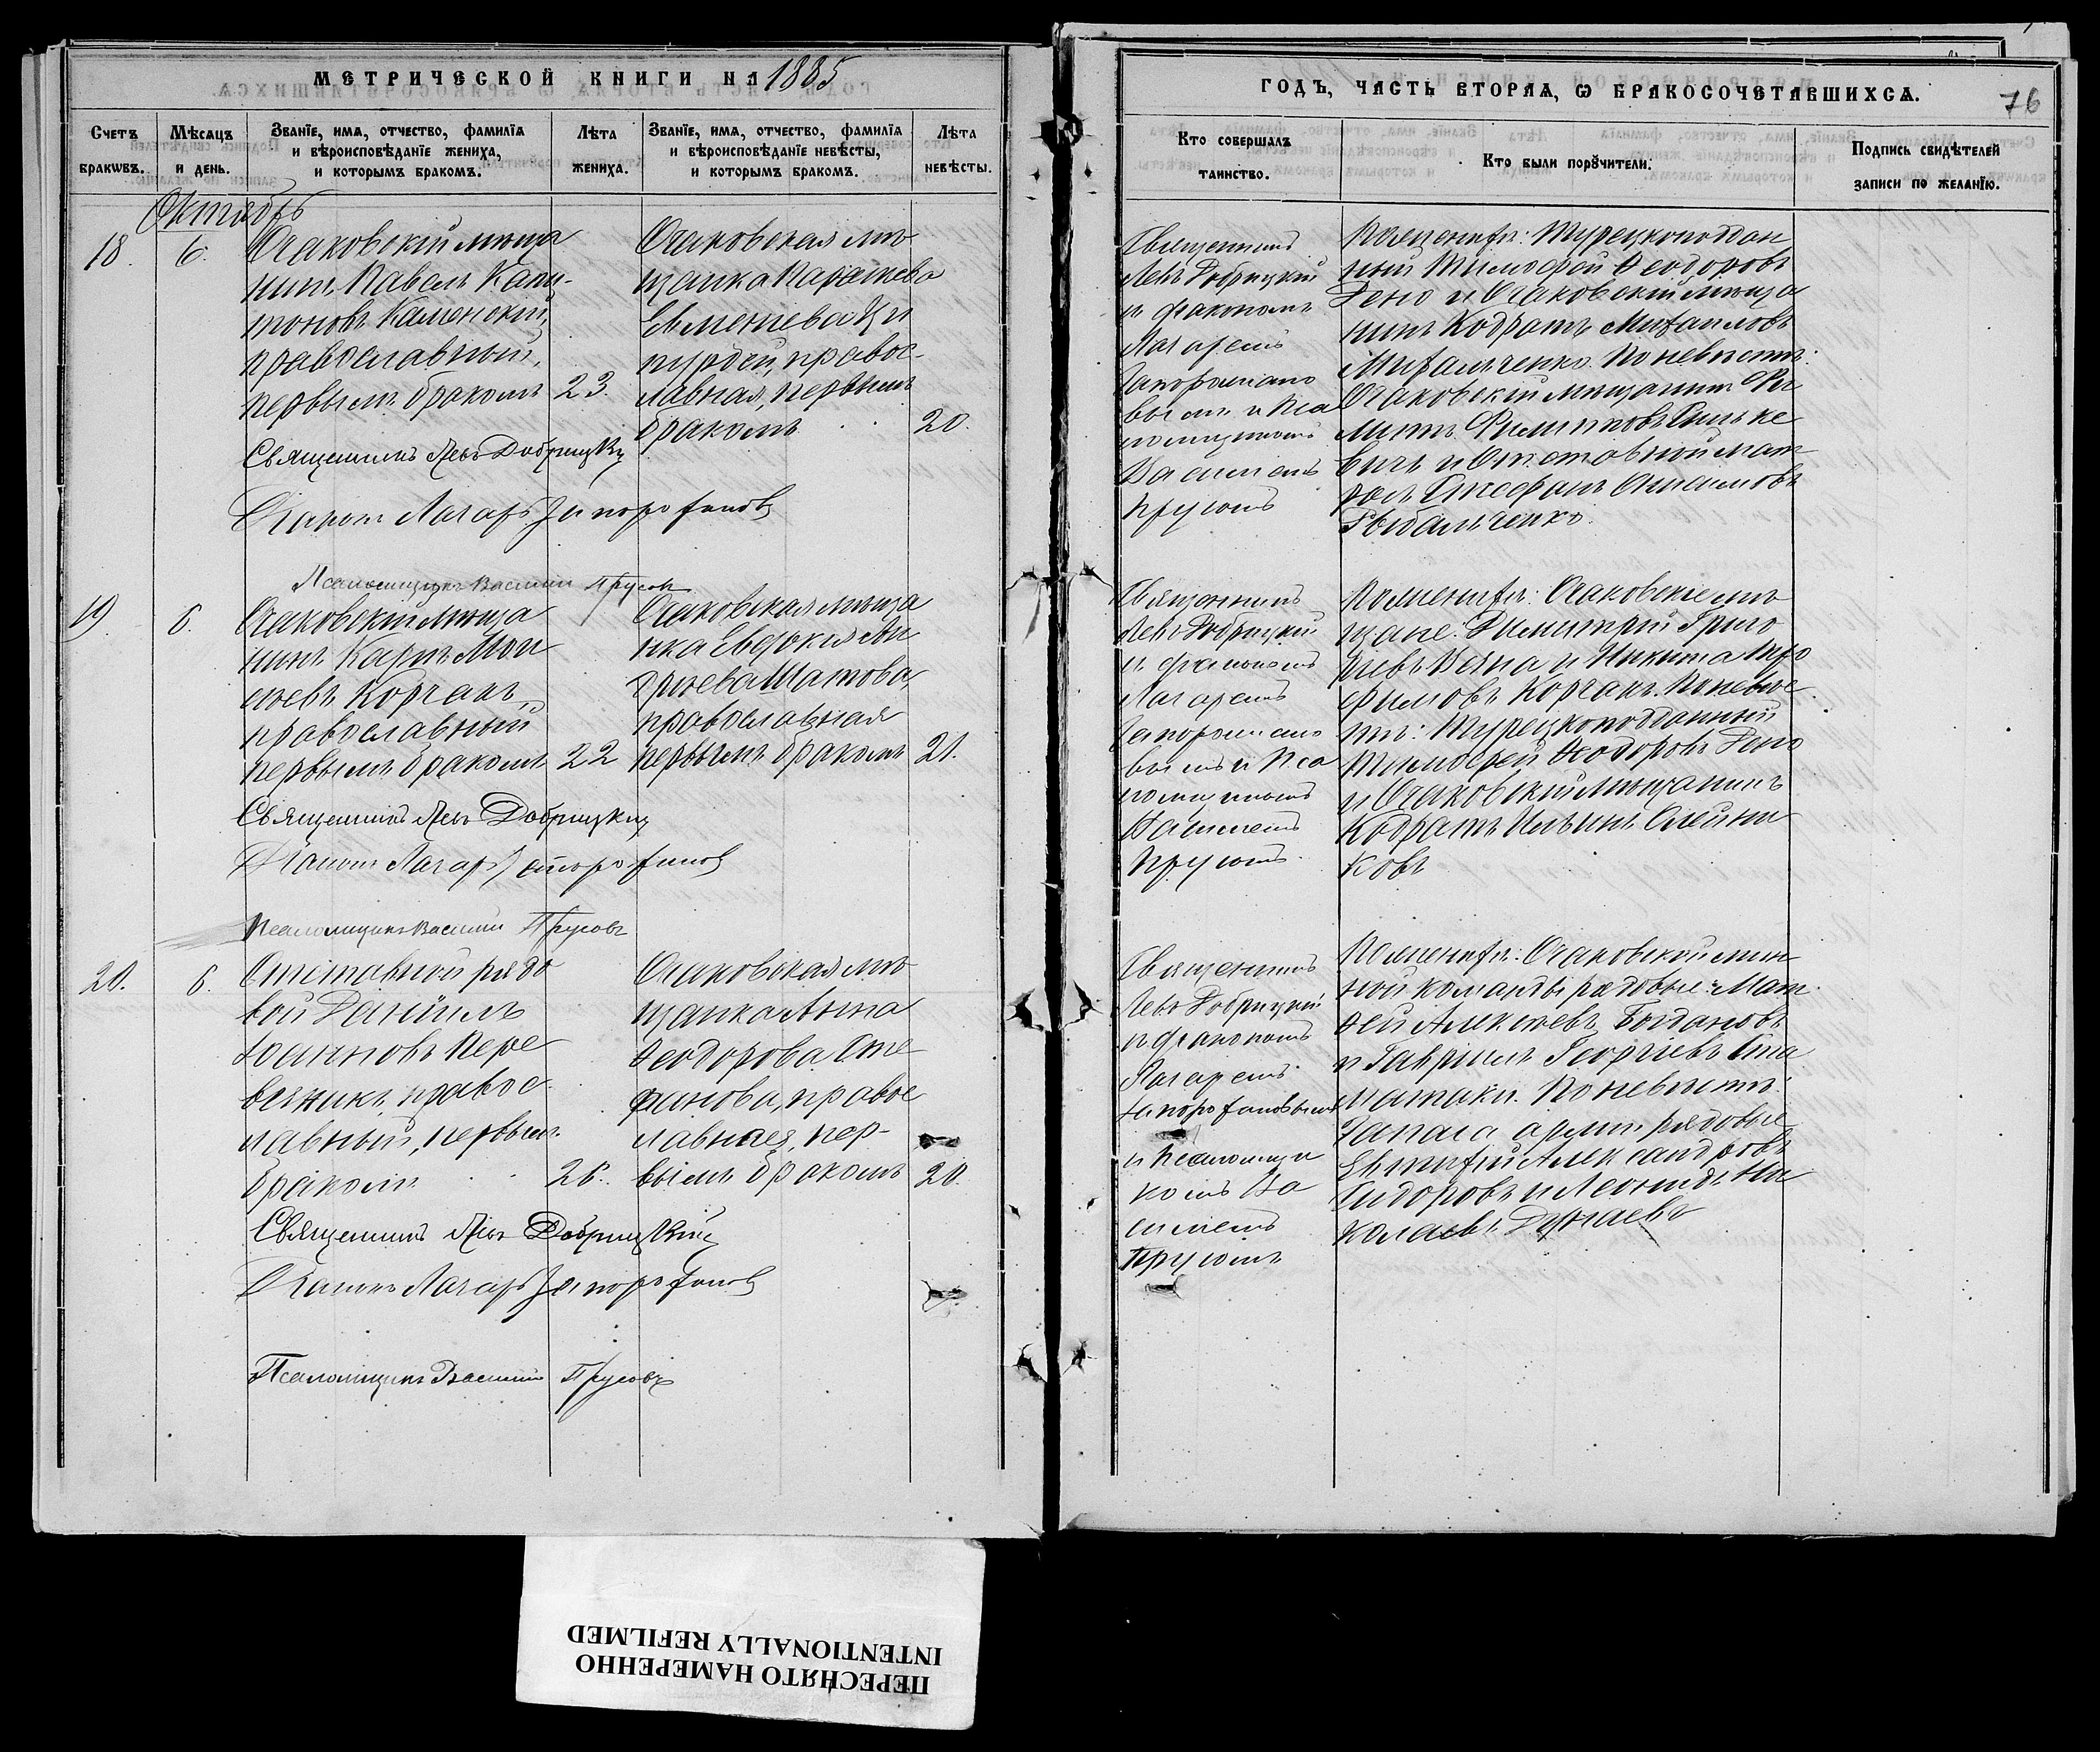 МЕТРИЧЕСКОЙ КНИГИ НА 1885
Счетъ браковъ.
Мѣсяцъ и день.
Званїе, имя, отчество, фамилїя и вѣроисповѣданїе жениха, и которымъ бракомъ.
Лѣта жениха.
Званїе, имя, отчество, фамилїя и вѣроисповѣданїе невѣсты, и которымъ бракомъ.
Лѣта невѣсты.
Октябрь
18. 6.
Очаковскій мѣща
нинъ Павелъ Капи-
тоновъ Каменскій,
православный,
первымъ бракомъ 23.
Очаковская мѣ
щанка Параскева
Евменіева Ци
пурдей, правос-
лавная, первымъ
бракомъ 20.
Священникъ Левъ Добрицкій
Діаконъ Лазарь Запорожановъ
Псаломщикъ Василій Прусовъ
19. 6.
Очаковскій мѣща
нинъ Карпъ Мои
сеевъ Корчакъ,
православный
первымъ бракомъ 22
Очаковская мѣща
нка Евдокія Ан
дреева Шатова,
православная
первымъ бракомъ 21.
Священникъ Левъ Добрицкій
Діаконъ Лазарь Запорожановъ
Псаломщикъ Василій Прусовъ
20. 6.
Отставной рядо
вой Даніилъ
Іоанновъ Пере
везникъ, правос
лавный, первымъ
бракомъ 26.
Очаковская мѣ
щанка Анна
Ѳеодорова Сте
фанова, правос
лавная, пер-
вымъ бракомъ 20.
Священникъ Левъ Добрицкій
Діаконъ Лазарь Запорожановъ
Псаломщикъ Василій Прусовъ
ГОДЪ, ЧАСТЬ ВТОРАЯ, Ѡ БРАКОСОЧЕТАВШИХСЯ.
76
Кто совершалъ таинство.
Кто были порꙋчители.
Подпись свидѣтелей записи по желанїю.
Священникъ
Левъ Добрицкій
и діакономъ
Лазаремъ
Запорожано
вымъ и Пса
ломщикомъ
Василіемъ
Прусомъ
По женихѣ: Турецкоподдан
ный Тимофей Ѳеодоровъ
Дено и Очаковскій мѣща
нинъ Кодратъ Михаиловъ
Михальченко. По невѣстѣ:
Очаковскій мѣщанинъ Фи
липпъ Филипповъ Синьке
вичъ и Отставной мат
росъ Стефанъ
Рыбальченко.
Священникъ
Левъ Добрицкій
и діакономъ
Лазаремъ
Запорожано
вымъ и Пса
ломщикомъ
Василіемъ
Прусомъ.
По женихѣ: Очаковскіе мѣ
щане: Димитрій Григо
рьевъ и Никита Тро
фимовъ Корчакъ. По невѣс
тѣ: Турецкоподданный
Тимофей Ѳеодоровъ Дено
и Очаковскій мѣщанинъ
Кодратъ Ильинъ Олейни
ковъ
Священникъ
Левъ Добрицкій
и діакономъ
Лазаремъ
Запорожановымъ
и Псаломщи
комъ Ва
силіемъ
Прусомъ
По женихѣ: Очаковской мин
ной команды рядовые: Мат
ѳей Алексѣевъ Богдановъ
и Гавріилъ Георгіевъ Ста
матаки. По невѣстѣ:
Запаса арміи рядовые
Евтихій Александровъ
Сидоровъ и Леонидъ Ни
колаевъ Дунаевъ
ПЕРЕСНЯТО НАМЕРЕННО
INTENTIONALLY REFILMED